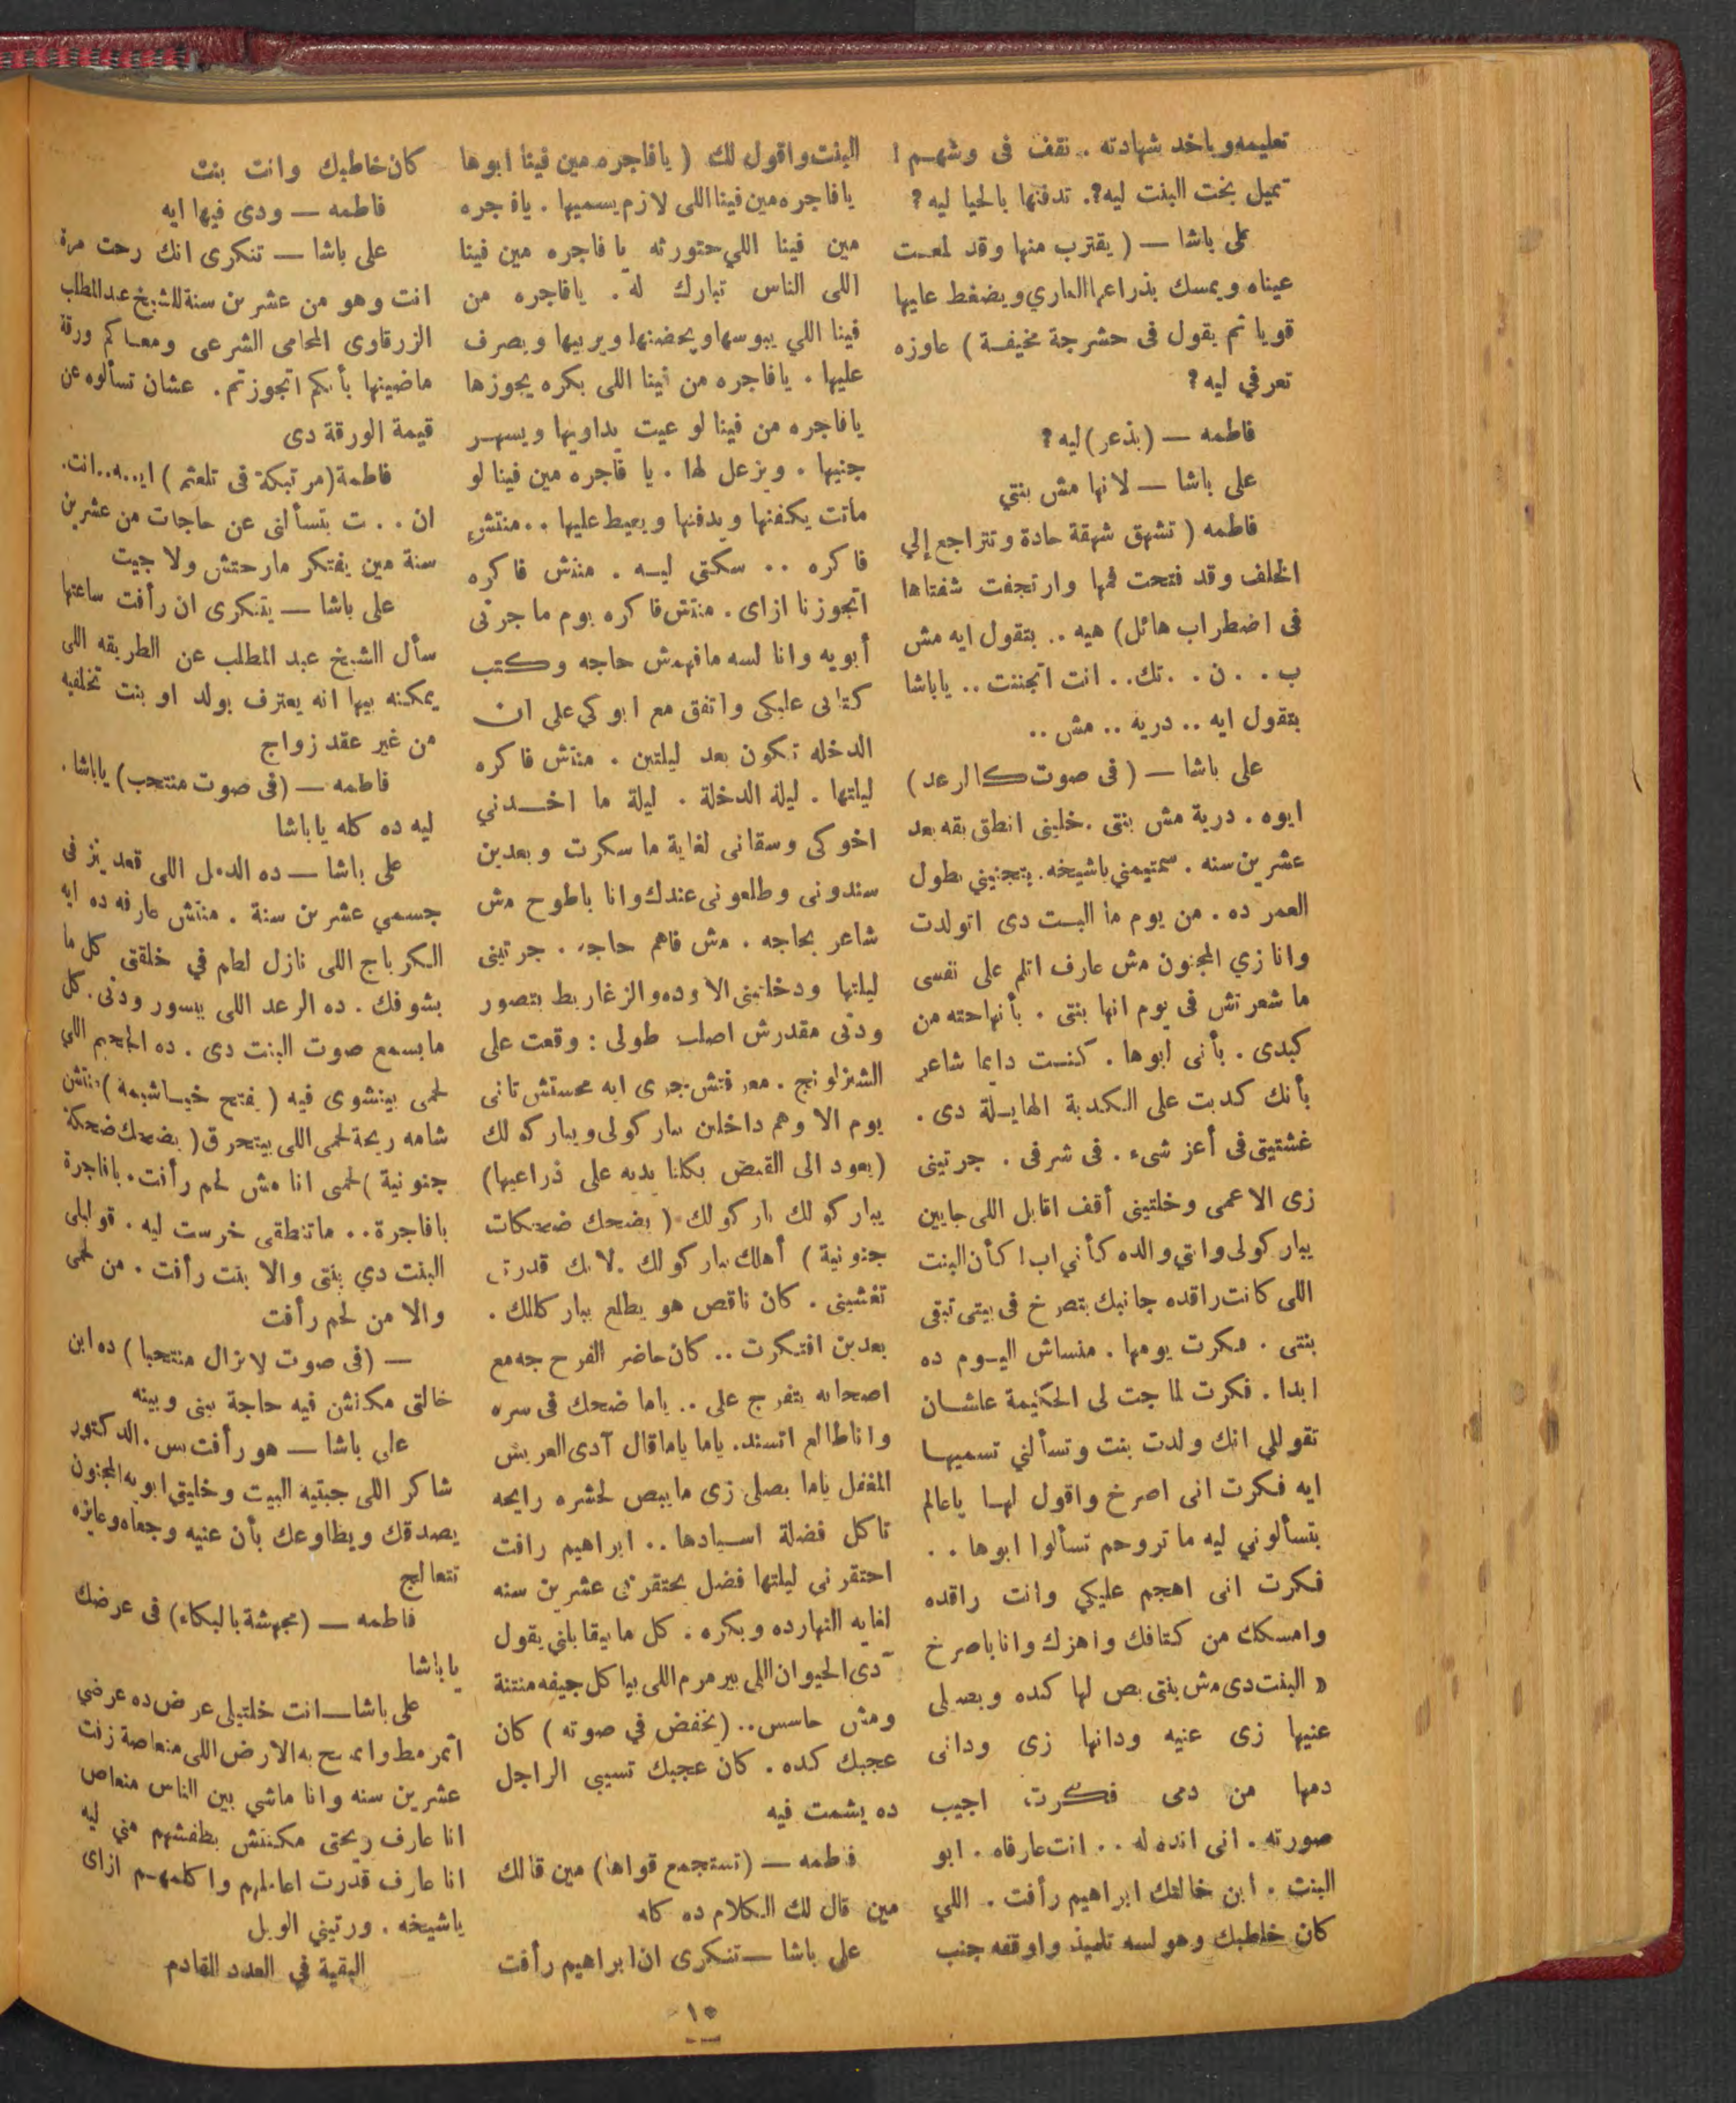 تعليمه وياخد شهادته . نقف فى وشهم !
نميل بخت البنت ليه ؟. ندفنها بالحيا ليه ؟
على باشا — ( يقترب منها وقد لمعت
عيناه ويمسك بذراعها العاري ويضغط عليها
قويا ثم يقول فى حشرجة مخيفة ) عاوزه
تعرفي ليه ؟
فاطمه — (بذعر) ليه ؟
على باشا — لانها مش بنتي
فاطمه ( تشهق شهقة حادة وتتراجع إلي
الخلف وقد فتحت فمها وارتجفت شفتاها
فى اضطراب هائل) هيه .. بتقول ايه مش
ب . . ن . . تك.. انت اتجننت .. ياباشا
بتقول ايه .. دريه .. مش ..
على باشا — ( فى صوت كالرعد )
ايوه . درية مش بنتى . خليني انطق بقه بعد
عشرين سنه . سمتيمني ياشيخه. بتجنيني بطول
العمر ده . من يوم ما البت دى اتولدت
وانا زي المجنون مش عارف اتلم على نفسى
ما شعرتش فى يوم انها بنتى . بأنها حته من
كبدى . بأنى ابوها . كنت دايما شاعر
بأنك كدبت على الكدبة الهايلة دى .
غشتيتى فى أعز شىء . فى شرفى . جرتينى
زى الاعمى وخلتينى أقف اقابل اللى جايين
يباركولى وانتي والده كأني اب ! كأن البنت
اللى كانت راقده جانبك بتصرخ فى بيتى تبقى
بنتى . فكرت يومها . منساش اليوم ده
ابدا . فكرت لما جت لى الحكيمة عاشان
تقوللي انك ولدت بنت وتسألني تسميها
ايه فكرت انى اصرخ واقول لها ياعالم
بتسألوني ليه ما تروحم تسألوا ابوها . .
فكرت انى اهجم عليكي وانت راقده
وامسكك من كتافك واهزك وانا باصرخ
« البنت دى مش بنتى بص لها كده وبصلى
عنيها زى عنيه ودانها زى ودانى
دمها من دمى فكرت اجيب
صورته . انى انده له . . انت عارفاه . ابو
البنت . ابن خالتك ابراهيم رأفت . اللي
كان خاطبك وهو لسه تلميذ واوقفه جنب
البنت واقول لك ( يافاجره مين فينا ابوها
يا فاجره مين فينا اللى لازم يسميها . يافجره
مين فينا اللي حتورثه يا فاجره مين فينا
اللى الناس تبارك له . يافاجره من
فينا اللي يبوسها ويحضنها ويربيها ويصرف
عليها . يافاجره من فينا اللى بكره يجوزها
يافاجره من فينا لو عيت يداويها ويسهر
جنبها . ويزعل لها . يا فاجره مين فينا لو
ماتت يكفنها ويدفنها ويعيط عليها .. منتش
فاكره .. سكتى ليه . منتش فاكره
اتجوزنا ازاى . منتش فاكره يوم ما جرنى
أبويه وانا لسه مافهمش حاجه وكتب
كتابى عليكى واتفق مع ابوكي على ان
الدخله تكون بعد ليلتين . منتش فاكره
ليلتها . ليلة الدخلة . ليلة ما اخدني
اخوكى وسقانى لغاية ما سكرت وبعدين
سندونى وطلعونى عندك وانا باطوح مش
شاعر بحاجه . مش فاهم حاجه . جرتينى
ليلتها ودخلتينى الاوده والزغاريط بتصور
ودنى مقدرش اصلب طولى : وقعت على
الشيزلونج . معرفتش جرى ايه محستش تانى
يوم الا وهم داخلين يباركولى ويباركولك
(يعود الى القبض بكلتا يديه على ذراعيها)
يباركولك باركولك ( بضحك ضحكات
جنونية ) أهلك يباركولك . لانك قدرتى
تغشينى . كان ناقص هو يطلع يباركلك .
بعدين افتكرت .. كان حاضر الفرح جه مع
اصحابه يتفرج على .. ياما ضحك فى سره
واناطالع اتسند. ياما ياماقال آدى العريس
المغفل ياما بصلى زى ما يبص لحشره رايحه
تاكل فضلة اسيادها .. ابراهيم رافت
احتقرنى ليلتها فضل يحتقرنى عشرين سنه
لغايه النهارده وبكره . كل ما يقابلني يقول
آدى الحيوان اللى بيرمرم اللى بياكل جيفه منتنة
ومش حاسس.. (يخفض في صوته ) كان
عجبك كده . كان عجبك تسيبي الراجل
ده يشمت فيه
فاطمه — (تستجمع قواها) مين قالك
مين قال لك الكلام ده كله
على باشا — تنكرى ان ابراهيم رأفت
كان خاطبك وانت بنت
فاطمه — ودى فيها ايه
على باشا — تنكرى انك رحت مرة
انت وهو من عشرين سنة للشيخ عبد المطلب
الزرقاوى المحامى الشرعى ومعاكم ورقة
ماضينها بأنكم اتجوزتم . عشان تسألوه عن
قيمة الورقة دى
فاطمة (مرتبكة فى تلعثم ) ايـ..ـه..انت.
ان . . ت بتسألنى عن حاجات من عشرين
سنة مين يفتكر مارحتش ولا جيت
على باشا — يتنكرى ان رأفت ساعتها
سأل الشيخ عبد المطلب عن الطريقه اللى
يمكنه بيها انه يعترف بولد او بنت تخلفيه
من غير عقد زواج
فاطمه — (فى صوت منتحب) ياباشا .
ليه ده كله ياباشا
على باشا — ده الدمل اللى قعد ينز فى
جسمي عشرين سنة . منتش عارفه ده ايه
الكرباج اللى نازل لطم في خلقتى كل ما
بشوفك . ده الرعد اللى بيسور ودنى. كل
ما بسمع صوت البنت دى . ده الجحيم اللي
لحمى بيتشوى فيه ( يفتح خياشيمه ) منتش
شامه ريحة لحمى اللى بيتحرق ( يضحك ضحكة
جنونية ) لحمى انا مش لحم رأفت . يافاجرة
يافاجرة.. ماتنطقى خرست ليه . قوليلى
البنت دي بنتى والا بنت رأفت . من لحمى
والا من لحم رأفت
— (فى صوت لا يزال منتحبا ) ده ابن
خالتى مكنش فيه حاجة بينى وبينه
على باشا — هو رأفت بس . الدكتور
شاكر اللى جبتيه البيت وخليتى ابويه المجنون
يصدقك ويطاوعك بأن عنيه وجعاه وعايزه
تتعالج
فاطمه — (مجهشة بالبكاء) فى عرضك
ياباشا
على باشا — انت خلتيلى عرض ده عرضي
اتمرمط واتمسح به الارض اللى منعاصة زفت
عشرين سنه وانا ماشي بين الناس منعاص
انا عارف ريحتى مكنتش بطفشهم مني ليه
انا عارف قدرت اعاملهم واكلمهم ازاى
ياشيخه . ورتيني الويل
البقية في العدد القادم
١٥